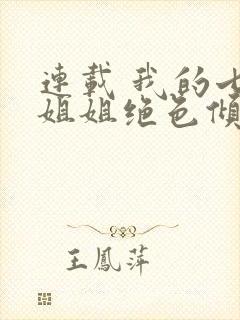 連載 我的七
姐姐绝色倾
王鳳萍